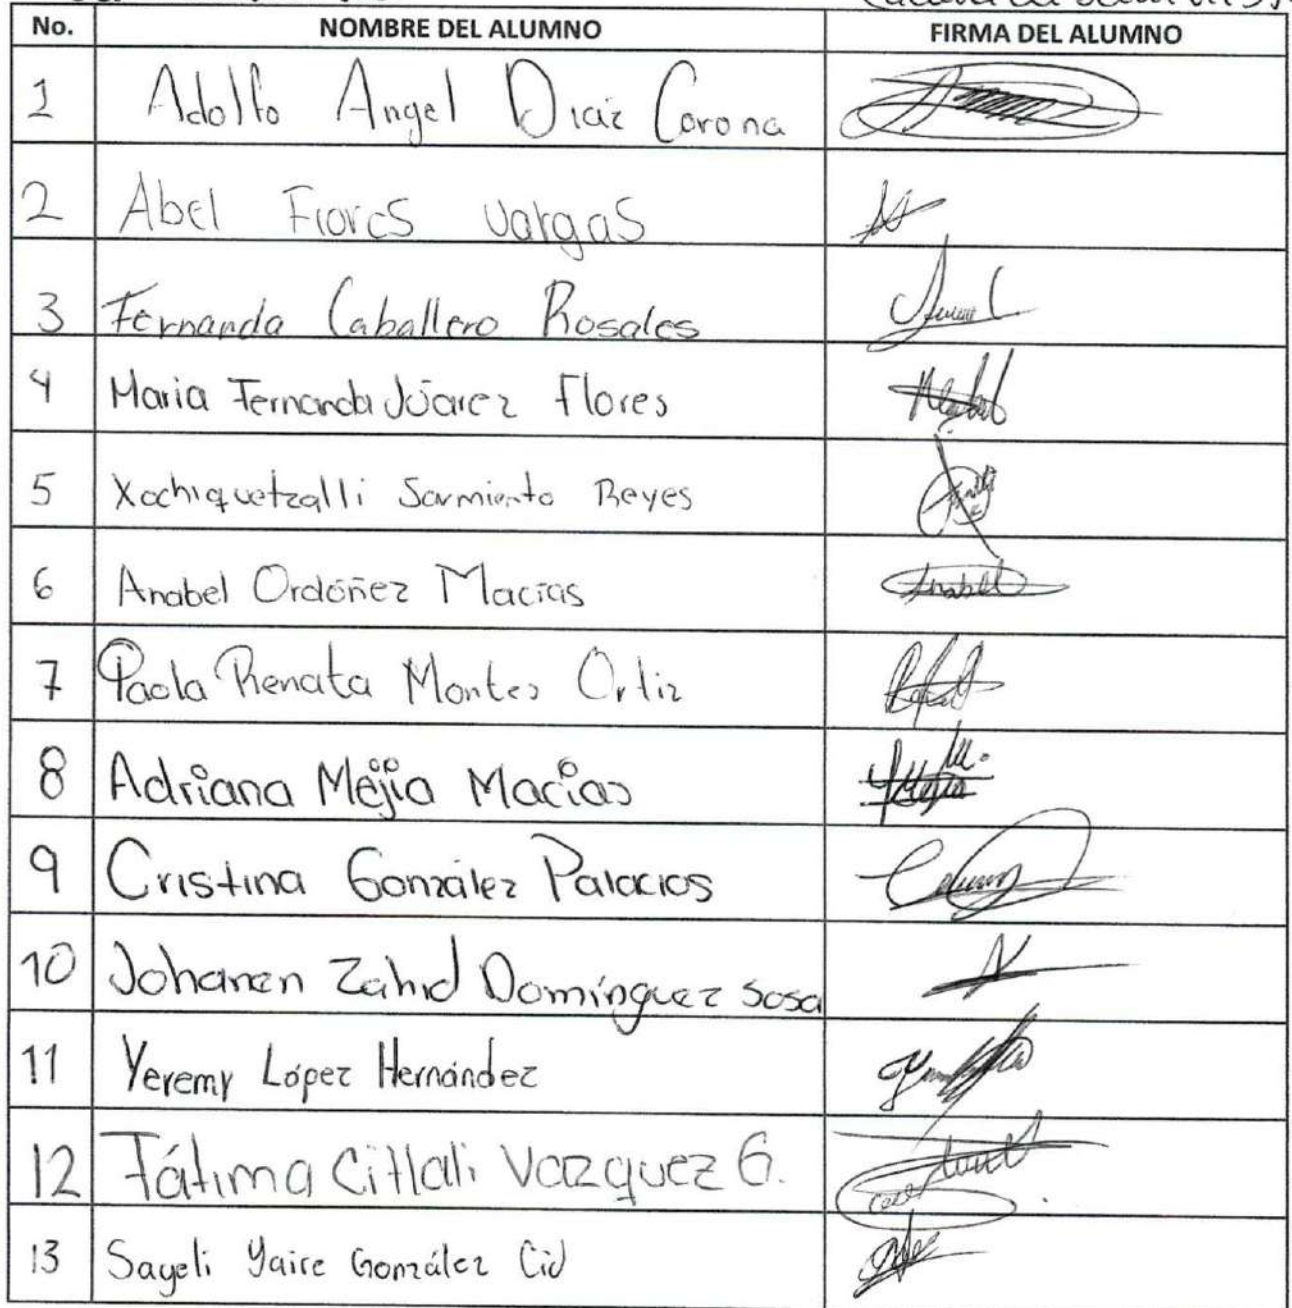 No. NOMBRE DEL ALUMNO FIRMA DEL ALUMNO
1 Adolfo Angel Diaz Corona
2 Abel Flores Vargas
3 Fernanda Caballero Rosales
4 Maria Fernanda Júarez Flores
5 Xochiquetzalli Sarmiento Reyes
6 Anabel Ordóñez Macías
7 Paola Renata Montes Ortiz
8 Adriana Mejia Macias
9 Cristina González Palacios
10 Johanen Zahid Domínguez Sosa
11 Yeremy López Hernández
12 Fátima Citlali Vazquez G.
13 Sayeli Yaire González Cid